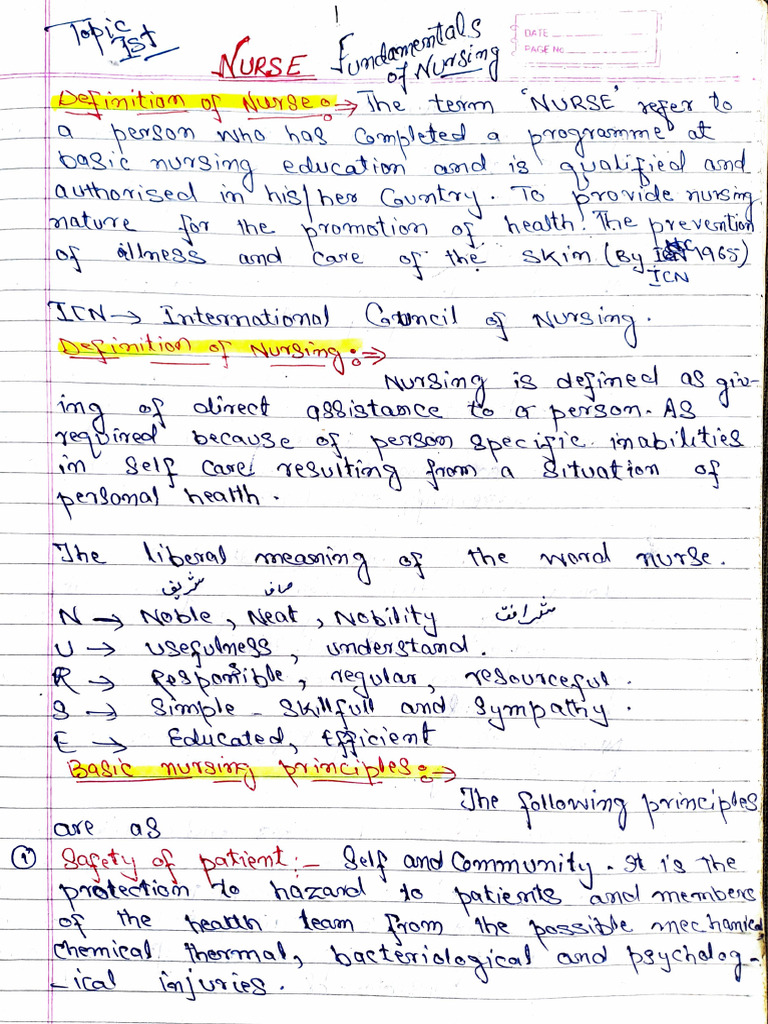 1
Topic
Ist
NURSE Fundamentals
of Nursing
DATE
PAGE No
Definition of Nurse :→ The term 'NURSE' refer to
a person who has completed a programme at
basic nursing education and is qualified and
authorised in his/her Country. To provide nursing
nature for the promotion of health. The prevention
of illness and care of the skim (By 1965)
ICN
ICN → International Council of Nursing.
Definition of Nursing :⇒
Nursing is defined as giv-
ing of direct assistance to a person. As
required because of person specific inabilities
in self care resulting from a situation of
personal health.
The liberal meaning of the word nurse.
شریف صاف
N → Noble, Neat, Nobility شرافت
U → usefulness, understand.
R → Responsible, regular, resourceful.
S → Simple - Skillfull and sympathy.
E → Educated, Efficient
Basic nursing principles :→
The following principles
are as
① Safety of patient :- Self and Community. It is the
protection to hazard to patients and members
of the health team from the possible mechanical
chemical thermal, bacteriological and psycholog-
-ical injuries.